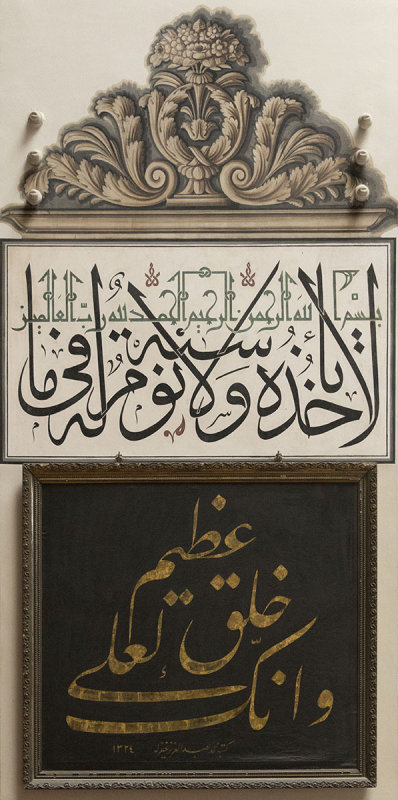 بسم الله الرحمن الرحيم الحمد لله رب العالمين
لا تأخذه سنة ولا نوم له ما في
وانك لعلى خلق عظيم
كتبه عبد العزيز غفرله ١٣٢٤